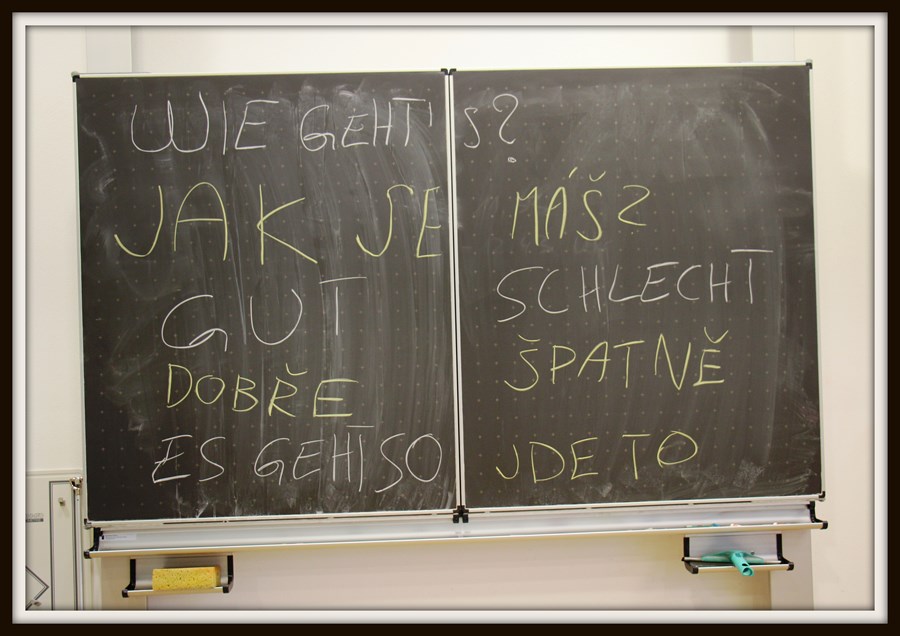 WIE GEHT'S?
JAK SE MÁŠ?
GUT SCHLECHT
DOBŘE ŠPATNĚ
ES GEHT SO JDE TO